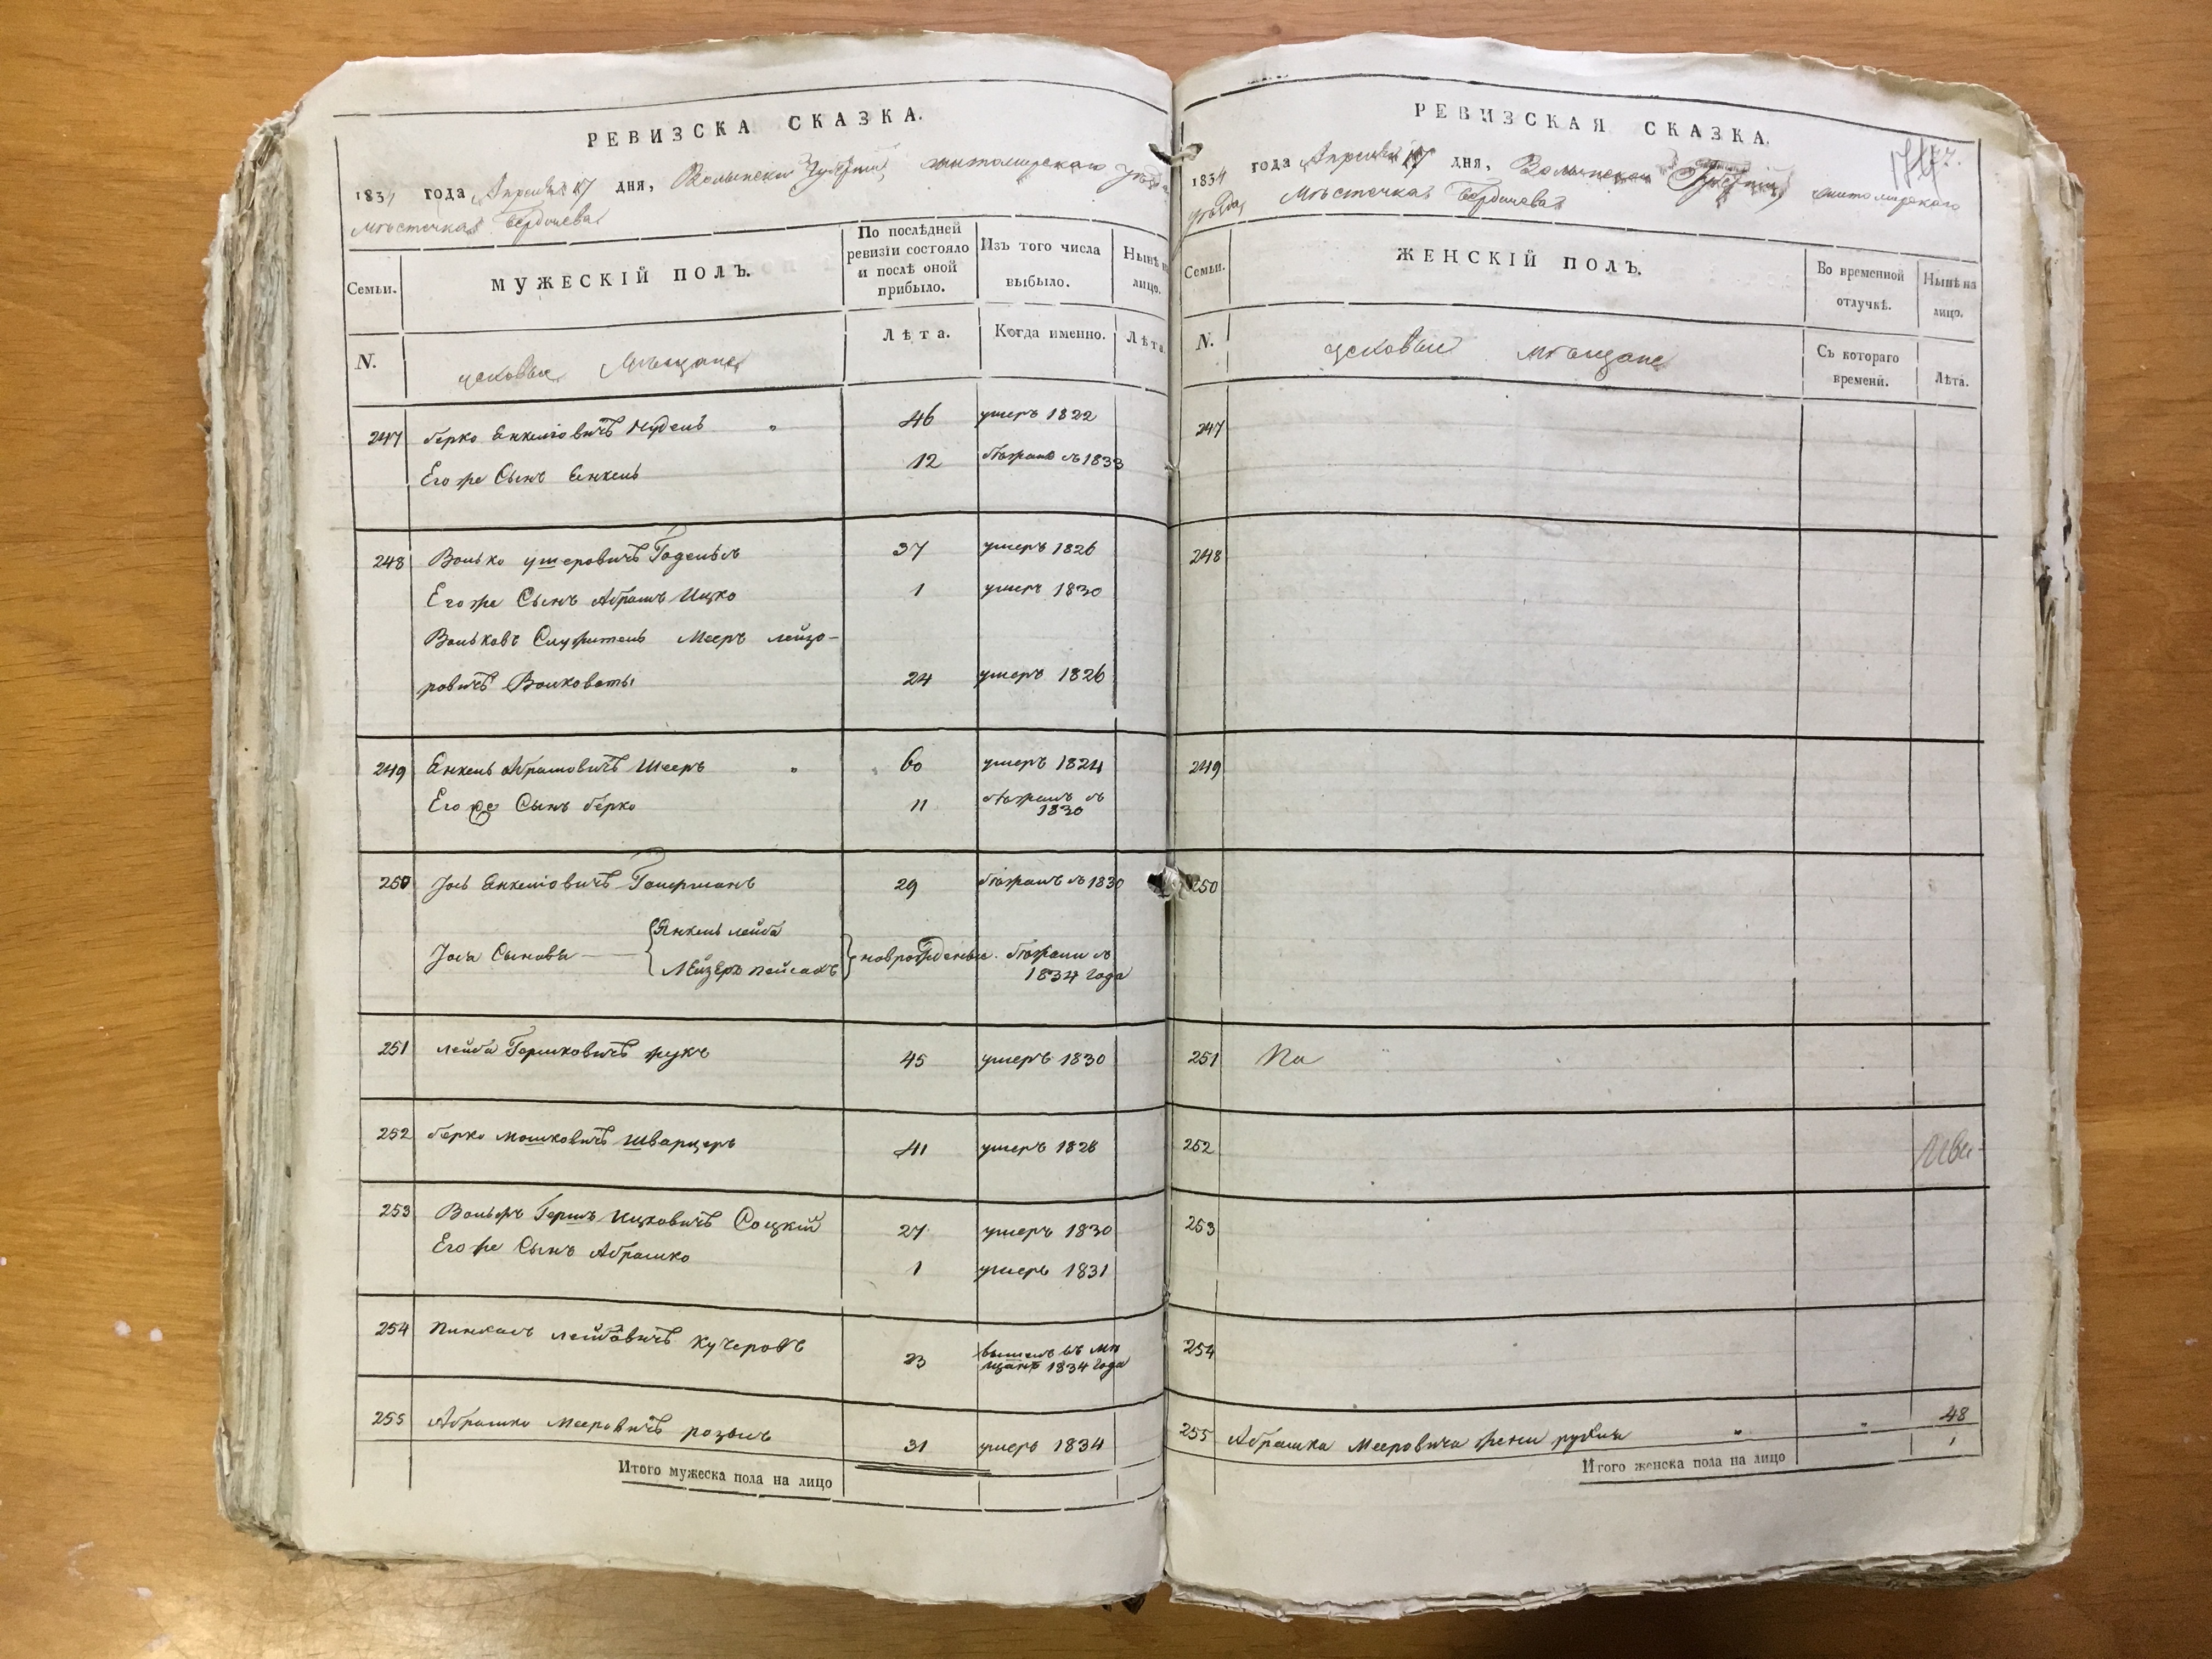 РЕВИЗСКА СКАЗКА.
1834 года Апреля 17 дня, Волынской Губернiи, житомирского уезда
Мѣстечка Бердичева
Семьи.
МУЖЕСКІЙ ПОЛЪ.
По послѣдней ревизіи состояло и послѣ оной прибыло.
Изъ того числа выбыло.
Нынѣ на лицо.
N.
Лѣта.
Когда именно.
Лѣта
Мѣщане
247 берко Енкелiовичъ 46 умеръ 1822
Его же Сынъ Енкель 12 1833
248 Волько Ушеровичъ 37 умеръ 1826
Его же Сынъ Абрамъ Ицко 1 умеръ 1830
Вольковъ Служитель Мееръ лейзо-
ровичъ Волковаты 24 умеръ 1826
249 Енкель Абрамовичъ Шееръ 60 умеръ 1824
Его же Сынъ берко 11
1830
250 Jось Енкелiовичъ Галперманъ 29 1830
Янкель лейба
Jося Сыновья Лейзеръ пейсахъ новрожденые.
1834 года
251 лейба Гершковичъ жукъ 45 умеръ 1830
252 берко мошковичъ Шварцеръ 41 умеръ 1826
253 Вольфъ Гершъ Ицковичъ Соцкiй 27 умеръ 1830
Его же Сынъ Абрашко 1 умеръ 1831
254 Пинхасъ лейбовичъ Кучеровъ 23 вышелъ въ мѣ
щанѣ 1834 года
255 Абрашко Мееровичъ розынъ 31 умеръ 1834
Итого мужеска пола на лицо
РЕВИЗСКАЯ СКАЗКА.
1834 года Апреля 17 дня, Волынской Губернiи, житомирского
уѣзда, Мѣстечка Бердичева
Семьи.
ЖЕНСКІЙ ПОЛЪ.
Во временной отлучкѣ.
Нынѣ на лицо.
N.
Съ котораго времени.
Лѣта.
мѣщане
247
248
249
250
251
252
253
254
255 Абрашка Мееровича жена рухля " " 48
Итого женска пола на лицо 1